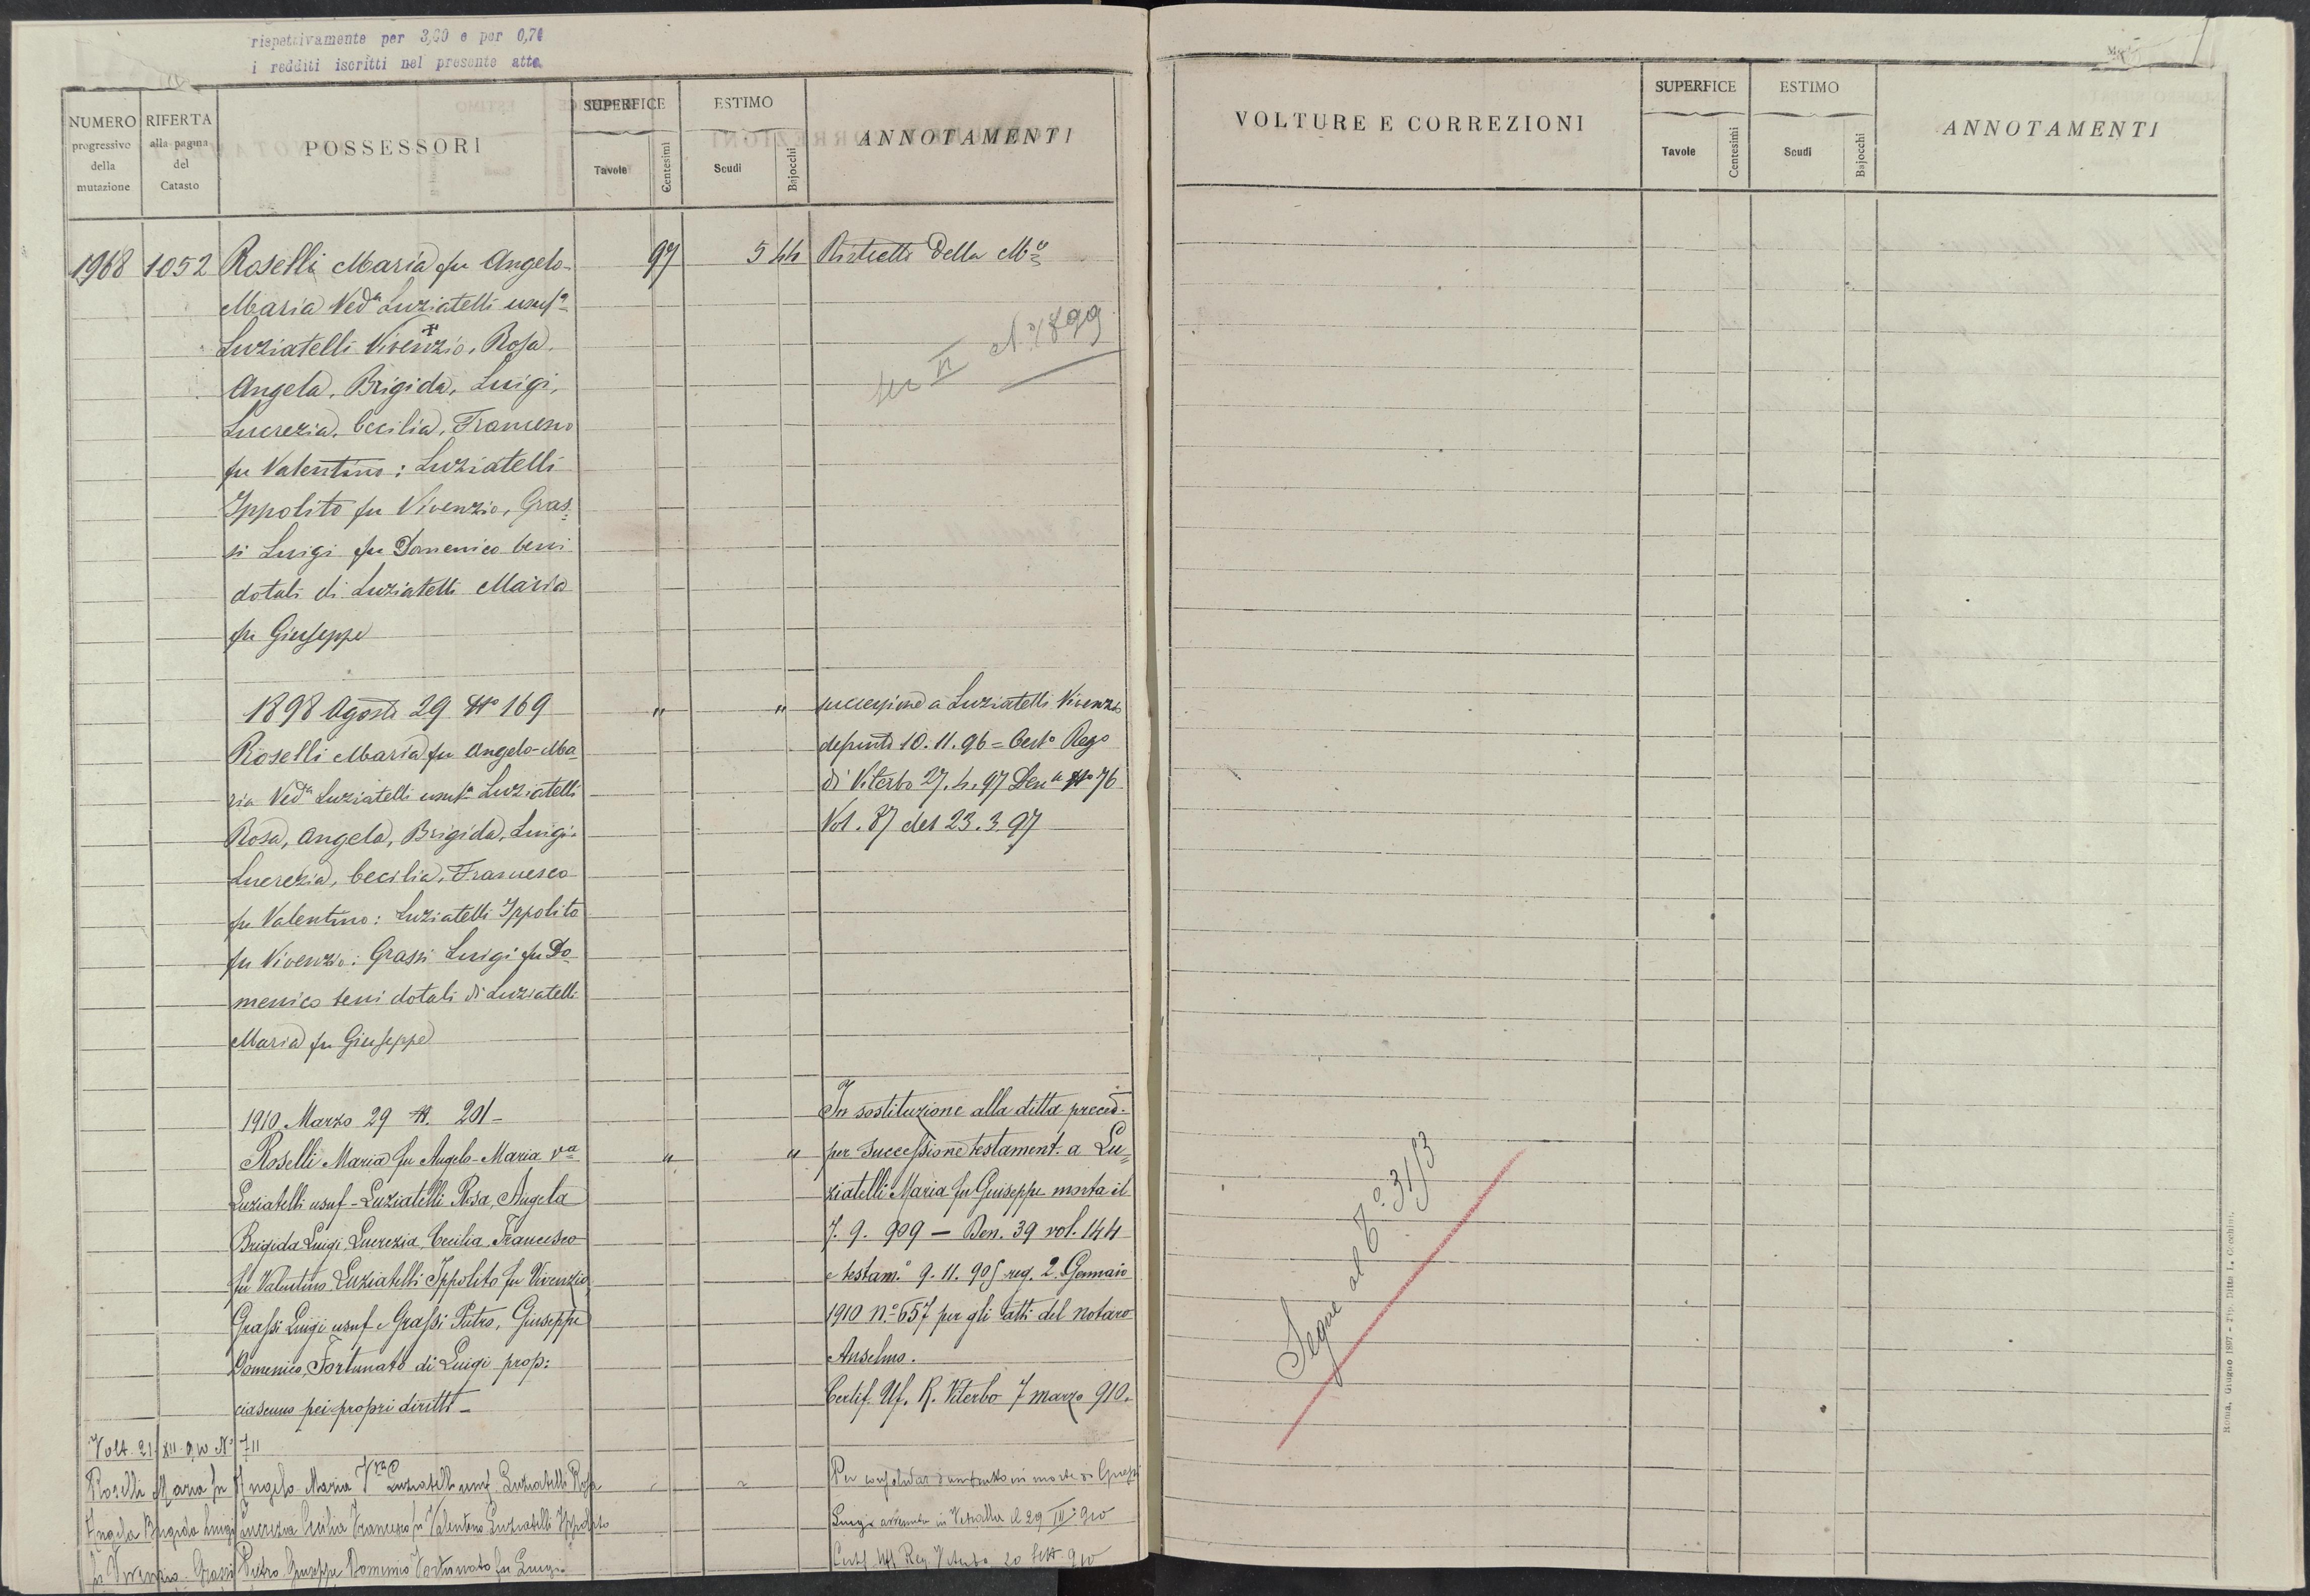 rispettivamente per 3,00 e per 0,74
i redditi iscritti nel presente atto
NUMERO progressivo della mutazione
RIFERTA alla pagina del Catasto
POSSESSORI
SUPERFICE
Tavole Centesimi
ESTIMO
Scudi Bajocchi
ANNOTAMENTI
1968 1052 Roselli Maria fu Angelo 97 5 44 Ristretto della
Maria Ved.a Luziatelli usuf.a
Luziatelli Vivenzio, Rosa,
Angela, Brigida, Luigi,
Lucrezia, Cecilia, Francesco
fu Valentino: Luziatelli
Ippolito fu Vivenzio, Gras=
si Luigi fu Domenico beni
dotali di Luziatelli Maria
fu Giuseppe
N. 1799
1898 Agosto 29 No 169 " " successione a Luziatelli Vivenzio
Roselli Maria fu Angelo-Ma= defunto 10.11.96 = Certo Rego
ria Ved.a Luziatelli usuf.a Luziatelli di Viterbo 27.4.97 Den.a No 76
Rosa, Angela, Brigida, Luigi, Vol. 87 del 23.3.97
Lucrezia, Cecilia, Francesco
fu Valentino: Luziatelli Ippolito
fu Vivenzio: Grassi Luigi fu Do=
menico beni dotali di Luziatelli
Maria fu Giuseppe
In sostituzione alla ditta preced.
1910 Marzo 29 N. 201 -
Roselli Maria fu Angelo-Maria va " " per successione testament. a Lu=
Luziatelli usuf - Luziatelli Rosa, Angela ziatelli Maria fu Guiseppe morta il
Brigida Luigi, Lucrezia, Cecilia, Francesco 7. 9. 909 — Den. 39 vol. 144
fu Valentino Luziatelli Ippolito fu Vivenzio e testam.o 9.11.905 reg. 2 Gennaio
Grassi Luigi usuf e Grassi Pietro, Giuseppe 1910 n.o 657 per gli atti del notaro
Domenico, Fortunato di Luigi prop: Anselmo.
ciascuno pei propri diritti - Certif. Uf. R. Viterbo 7 marzo 910.
Volt. 21 XII 910 N. 711
Roselli Maria fu Angelo Maria Va Luziatelli usuf Luziatelli Rosa Per in morte di Grassi
Angela Brigida Luigi Lucrezia Cecilia Francesco fu Valentino Luziatelli Ippolito Luigi avvenuta in Vetralla il 29 910
fu Vivenzio - Grassi Pietro Giuseppe Domenico Fortunato fu Luigi Certif. Uff. Reg. Viterbo 20 Sett. 910
VOLTURE E CORREZIONI
SUPERFICE
Tavole Centesimi
ESTIMO
Scudi Bajocchi
ANNOTAMENTI
Segue al 3173
Roma, Giugno 1897 - Tip. Ditta L. Cecchini.